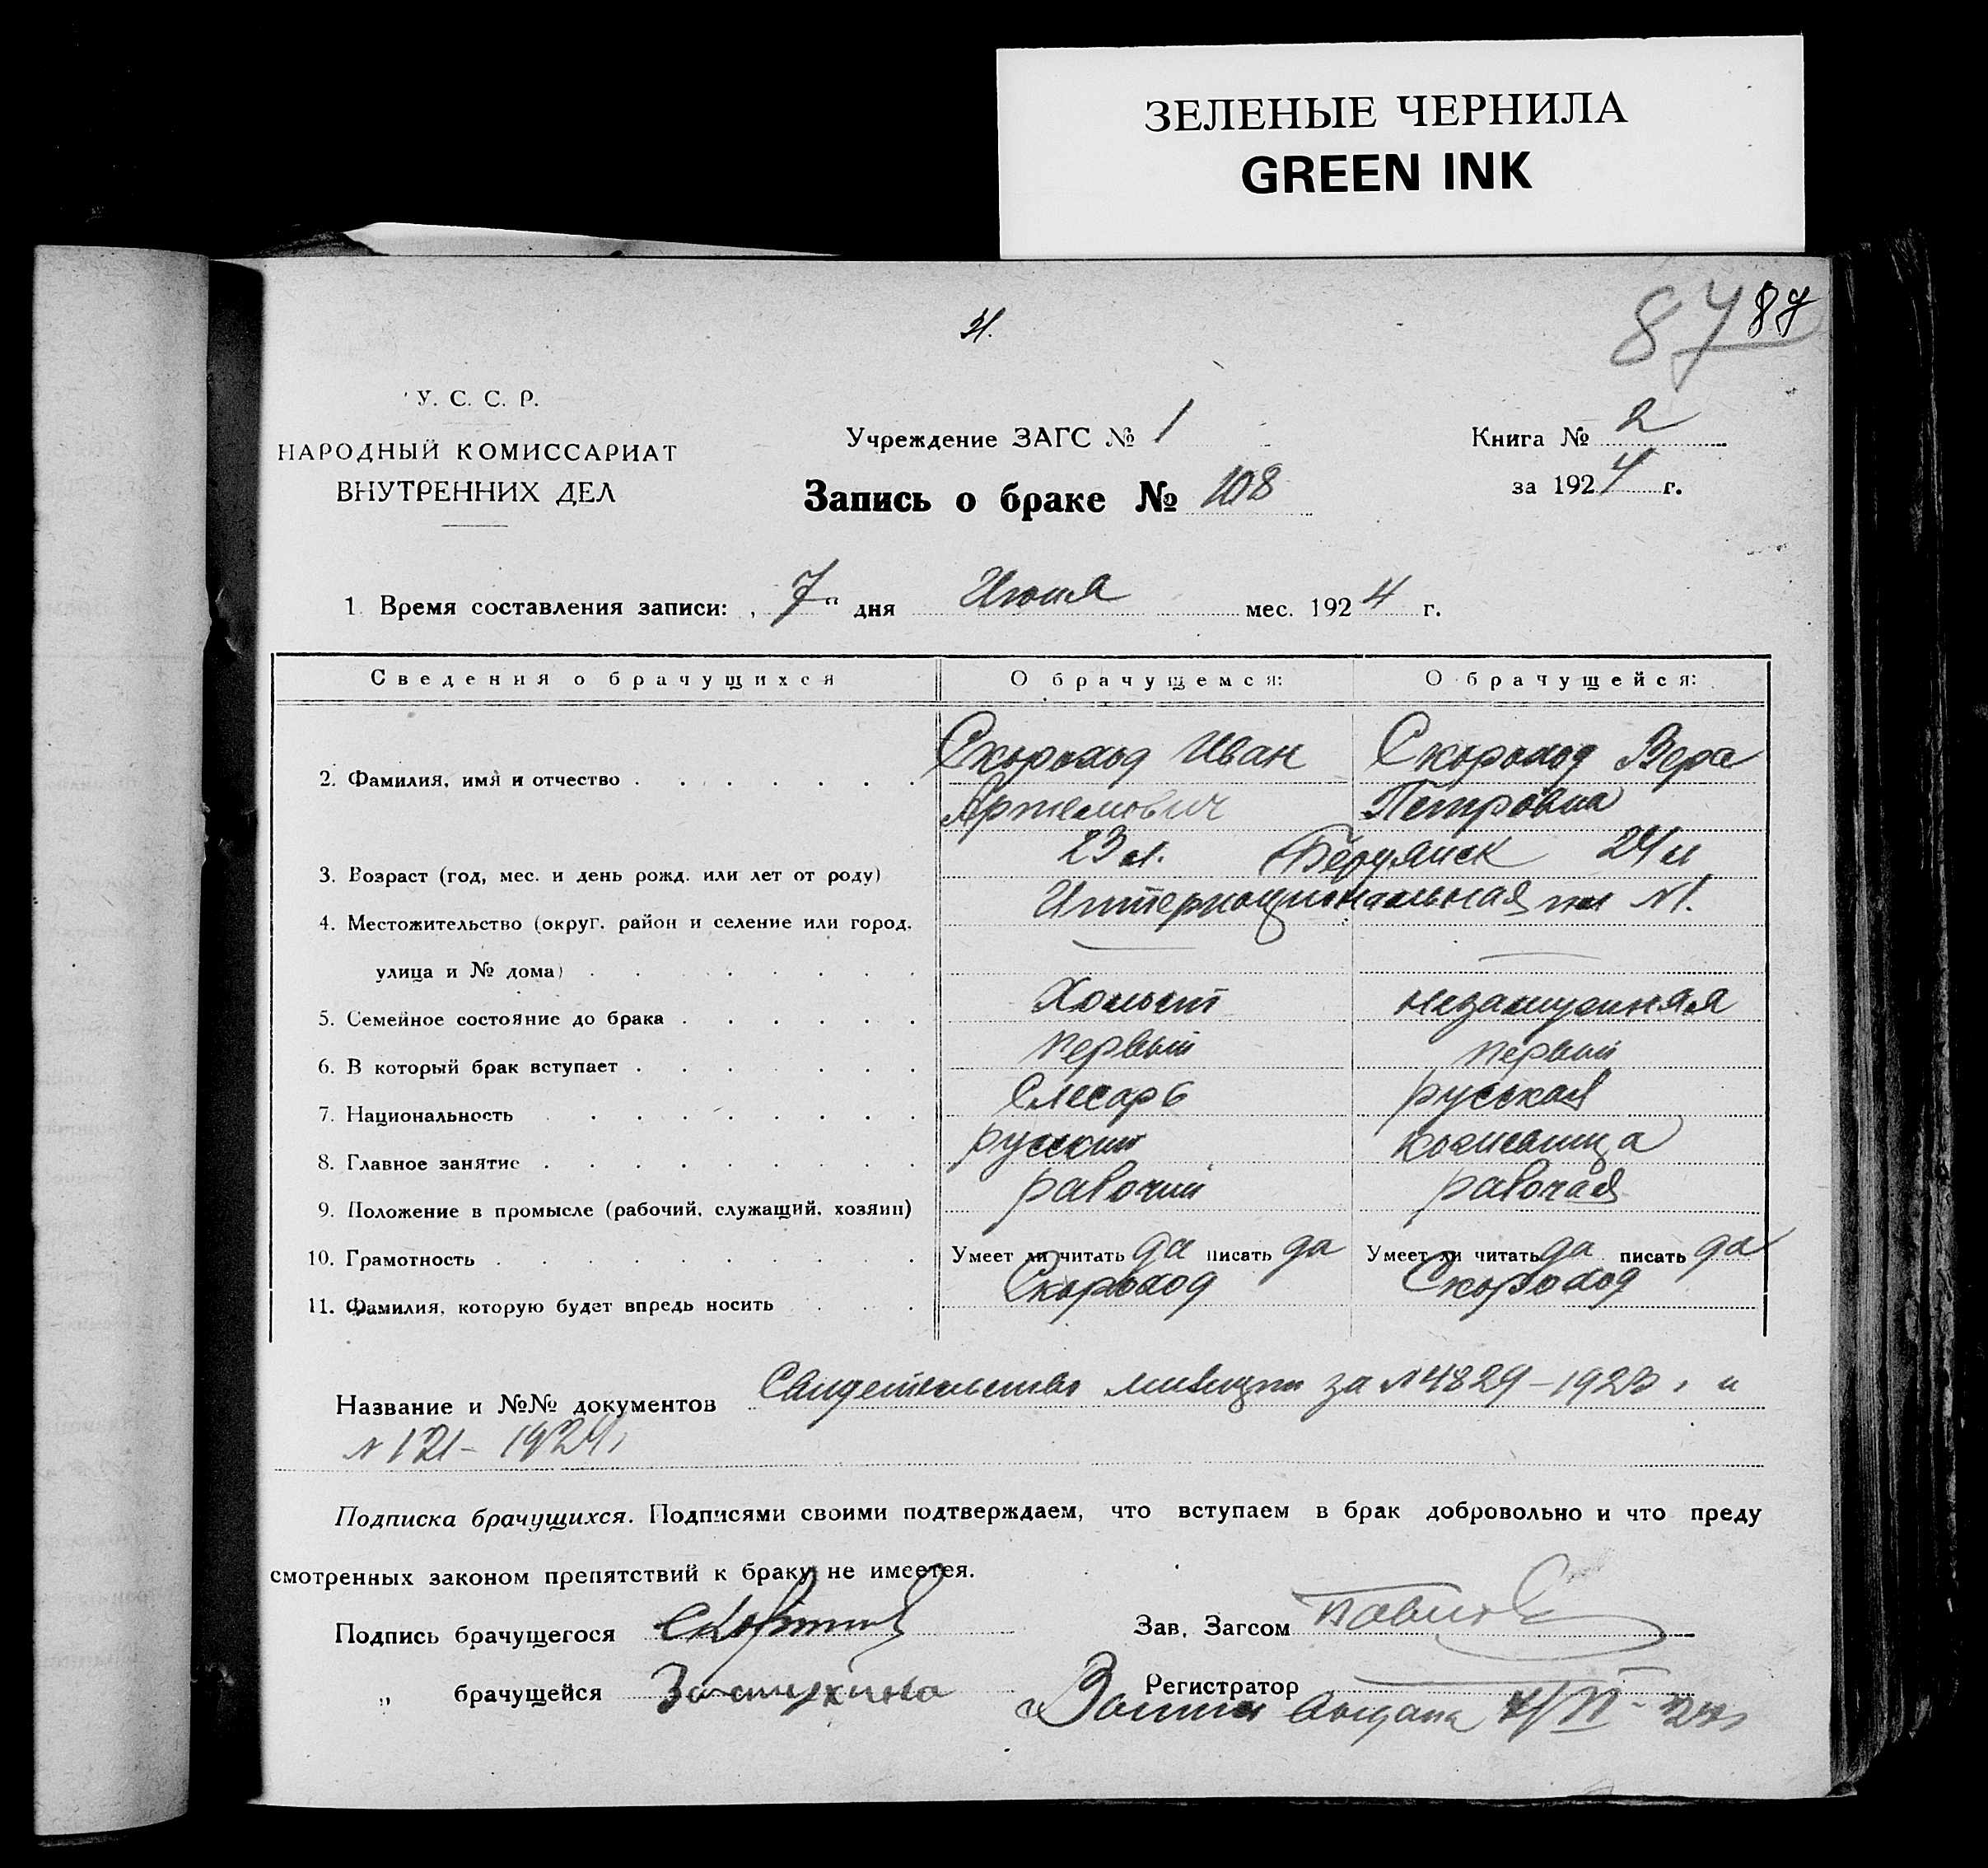 ЗЕЛЕНЫЕ ЧЕРНИЛА
GREEN INK
87 87
У. С. С. Р.
НАРОДНЫЙ КОМИССАРИАТ
ВНУТРЕННИХ ДЕЛ
Учреждение ЗАГС № 1
Запись о браке № 108
Книга № 2
за 1924 г.
1. Время составления записи: „7" дня Июня мес. 1924 г.
Сведения о брачущихся О брачущемся: О брачущейся:
2. Фамилия, имя и отчество Скороход Иван Скороход Вера
Артемович Петровна
3. Возраст (год, мес. и день рожд. или лет от роду) 23 л. Бердянск 24 л
4. Местожительство (округ. район и селение или город. Интернациональная ул №1.
улица и № дома)
5. Семейное состояние до брака Холост незамужняя
6. В который брак вступает первый первый
7. Национальность Слесарь русская
8. Главное занятие русский
9. Положение в промысле (рабочий, служащий, хозяин) рабочий рабочая
10. Грамотность Умеет ли читать да писать да Умеет ли читать да писать да
11. Фамилия, которую будет впредь носить Скороход Скороход
Название и №№ документов Свидетельство милиции за №4829-1923, и
№121-1924,
Подписка брачущихся. Подписями своими подтверждаем, что вступаем в брак добровольно и что преду
смотренных законом препятствий к браку не имеется.
Подпись брачущегося
Зав. Загсом
„ брачущейся
Регистратор